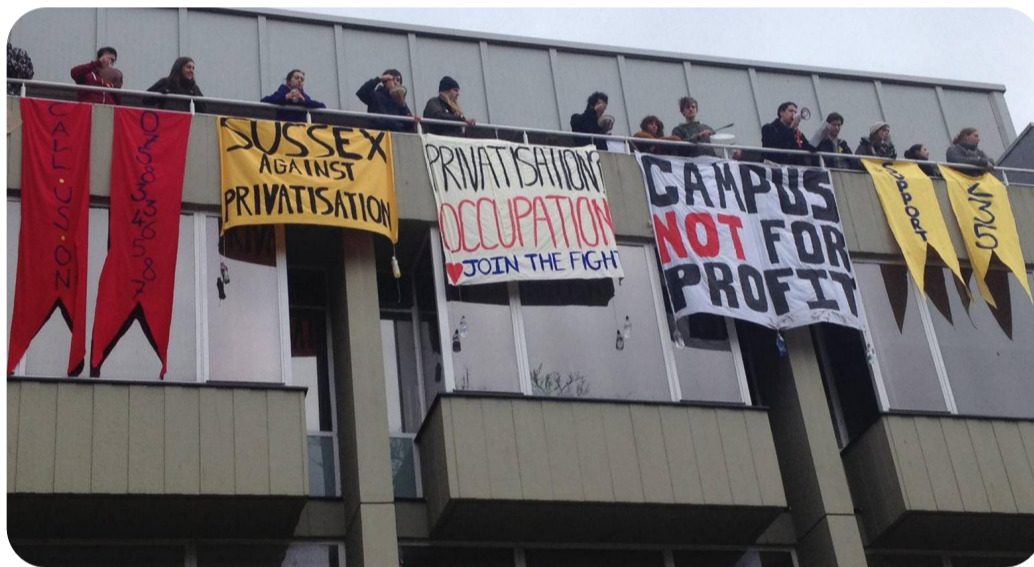 CALL·US·ON
SUSSEX
AGAINST
PRIVATISATION
PRIVATISATION?
OCCUPATION
JOIN THE FIGHT
CAMPUS
NOT FOR
PROFIT
SUPPORT